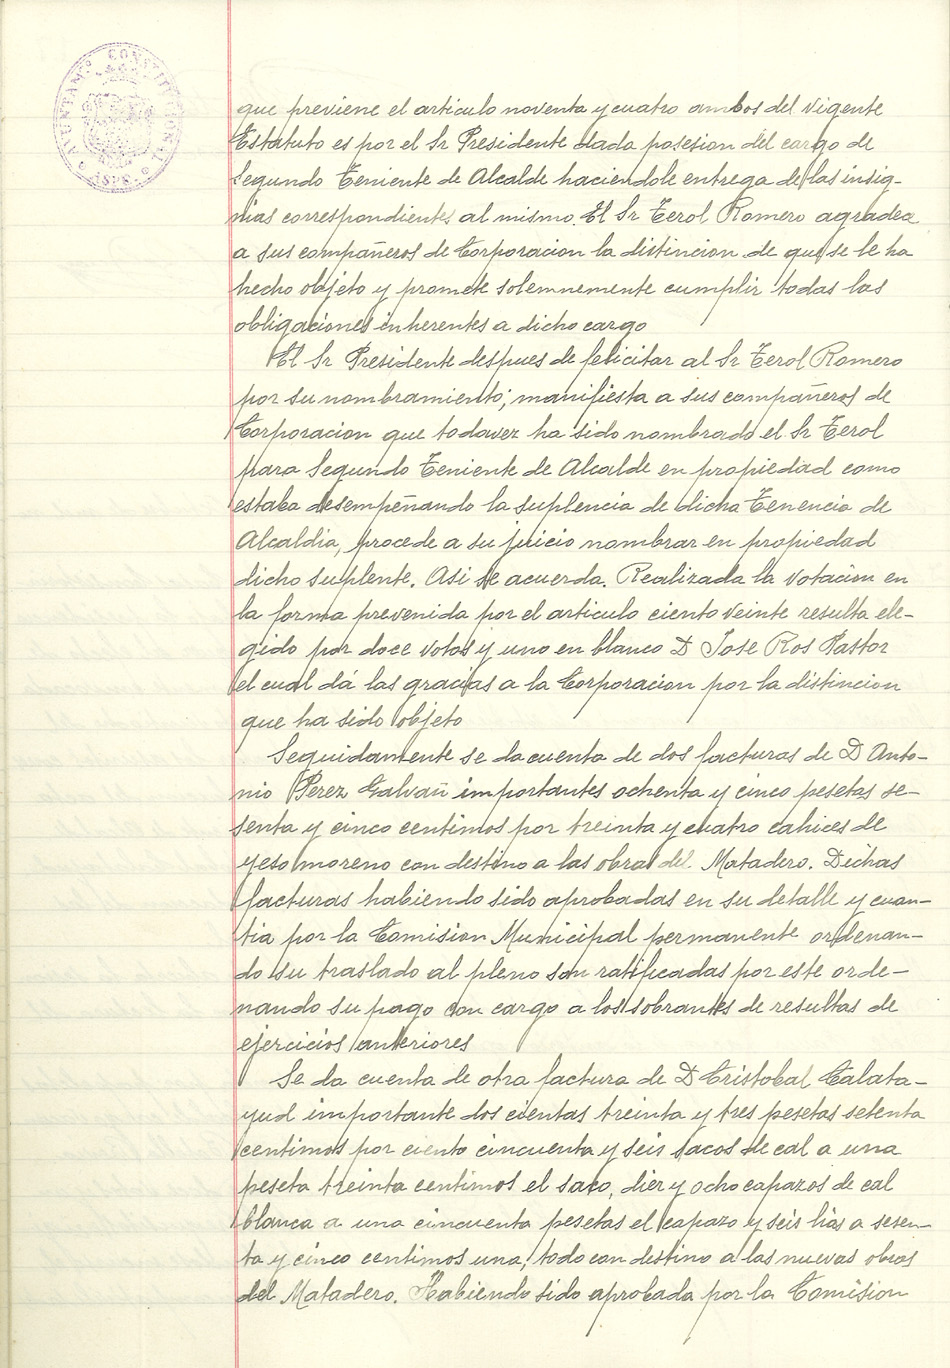 AYUNTAM.º CONSTITUCIONAL
ASPE
que previene el articulo noventa y cuatro ambos del vigente
Estatuto es por el Sr Presidente dada posesion del cargo de
Segundo Teniente de Alcalde haciendole entrega de las insig-
nias correspondientes al mismo. El Sr Terol Romero agradece
a sus compañeros de Corporacion la distincion de que se le ha
hecho objeto y promete solemnemente cumplir todas las
obligaciones inherentes a dicho cargo
El Sr Presidente despues de felicitar al Sr Terol Romero
por su nombramiento, manifiesta a sus compañeros de
Corporacion que todavez ha sido nombrado el Sr Terol
para Segundo Teniente de Alcalde en propiedad como
estaba desempeñando la suplencia de dicha Tenencia de
Alcaldia, procede a su juicio nombrar en propiedad
dicho suplente. Asi se acuerda. Realizada la votacion en
la forma prevenida por el articulo ciento veinte resulta ele-
gido por doce votos y uno en blanco D Jose Ros Pastor
el cual dá las gracias a la Corporacion por la distincion
que ha sido objeto
Seguidamente se da cuenta de dos facturas de D Anto-
nio Perez Galvañ importantes ochenta y cinco pesetas se-
senta y cinco centimos por treinta y cuatro cahices de
yeso moreno con destino a las obras del Matadero. Dichas
facturas habiendo sido aprobadas en su detalle y cuan-
tia por la Comision Municipal permanente ordenan-
do su traslado al pleno son ratificadas por este orde-
nando su pago con cargo a los sobrantes de resultas de
ejercicios anteriores
Se da cuenta de otra factura de D Cristobal Calata-
yud importante dos cientas treinta y tres pesetas setenta
centimos por ciento cincuenta y seis sacos de cal a una
peseta treinta centimos el saco, diez y ocho capazos de cal
blanca a una cincuenta pesetas el capazo y seis lias a sesen-
ta y cinco centimos una, todo con destino a las nuevas obras
del Matadero. Habiendo sido aprobada por la Comision